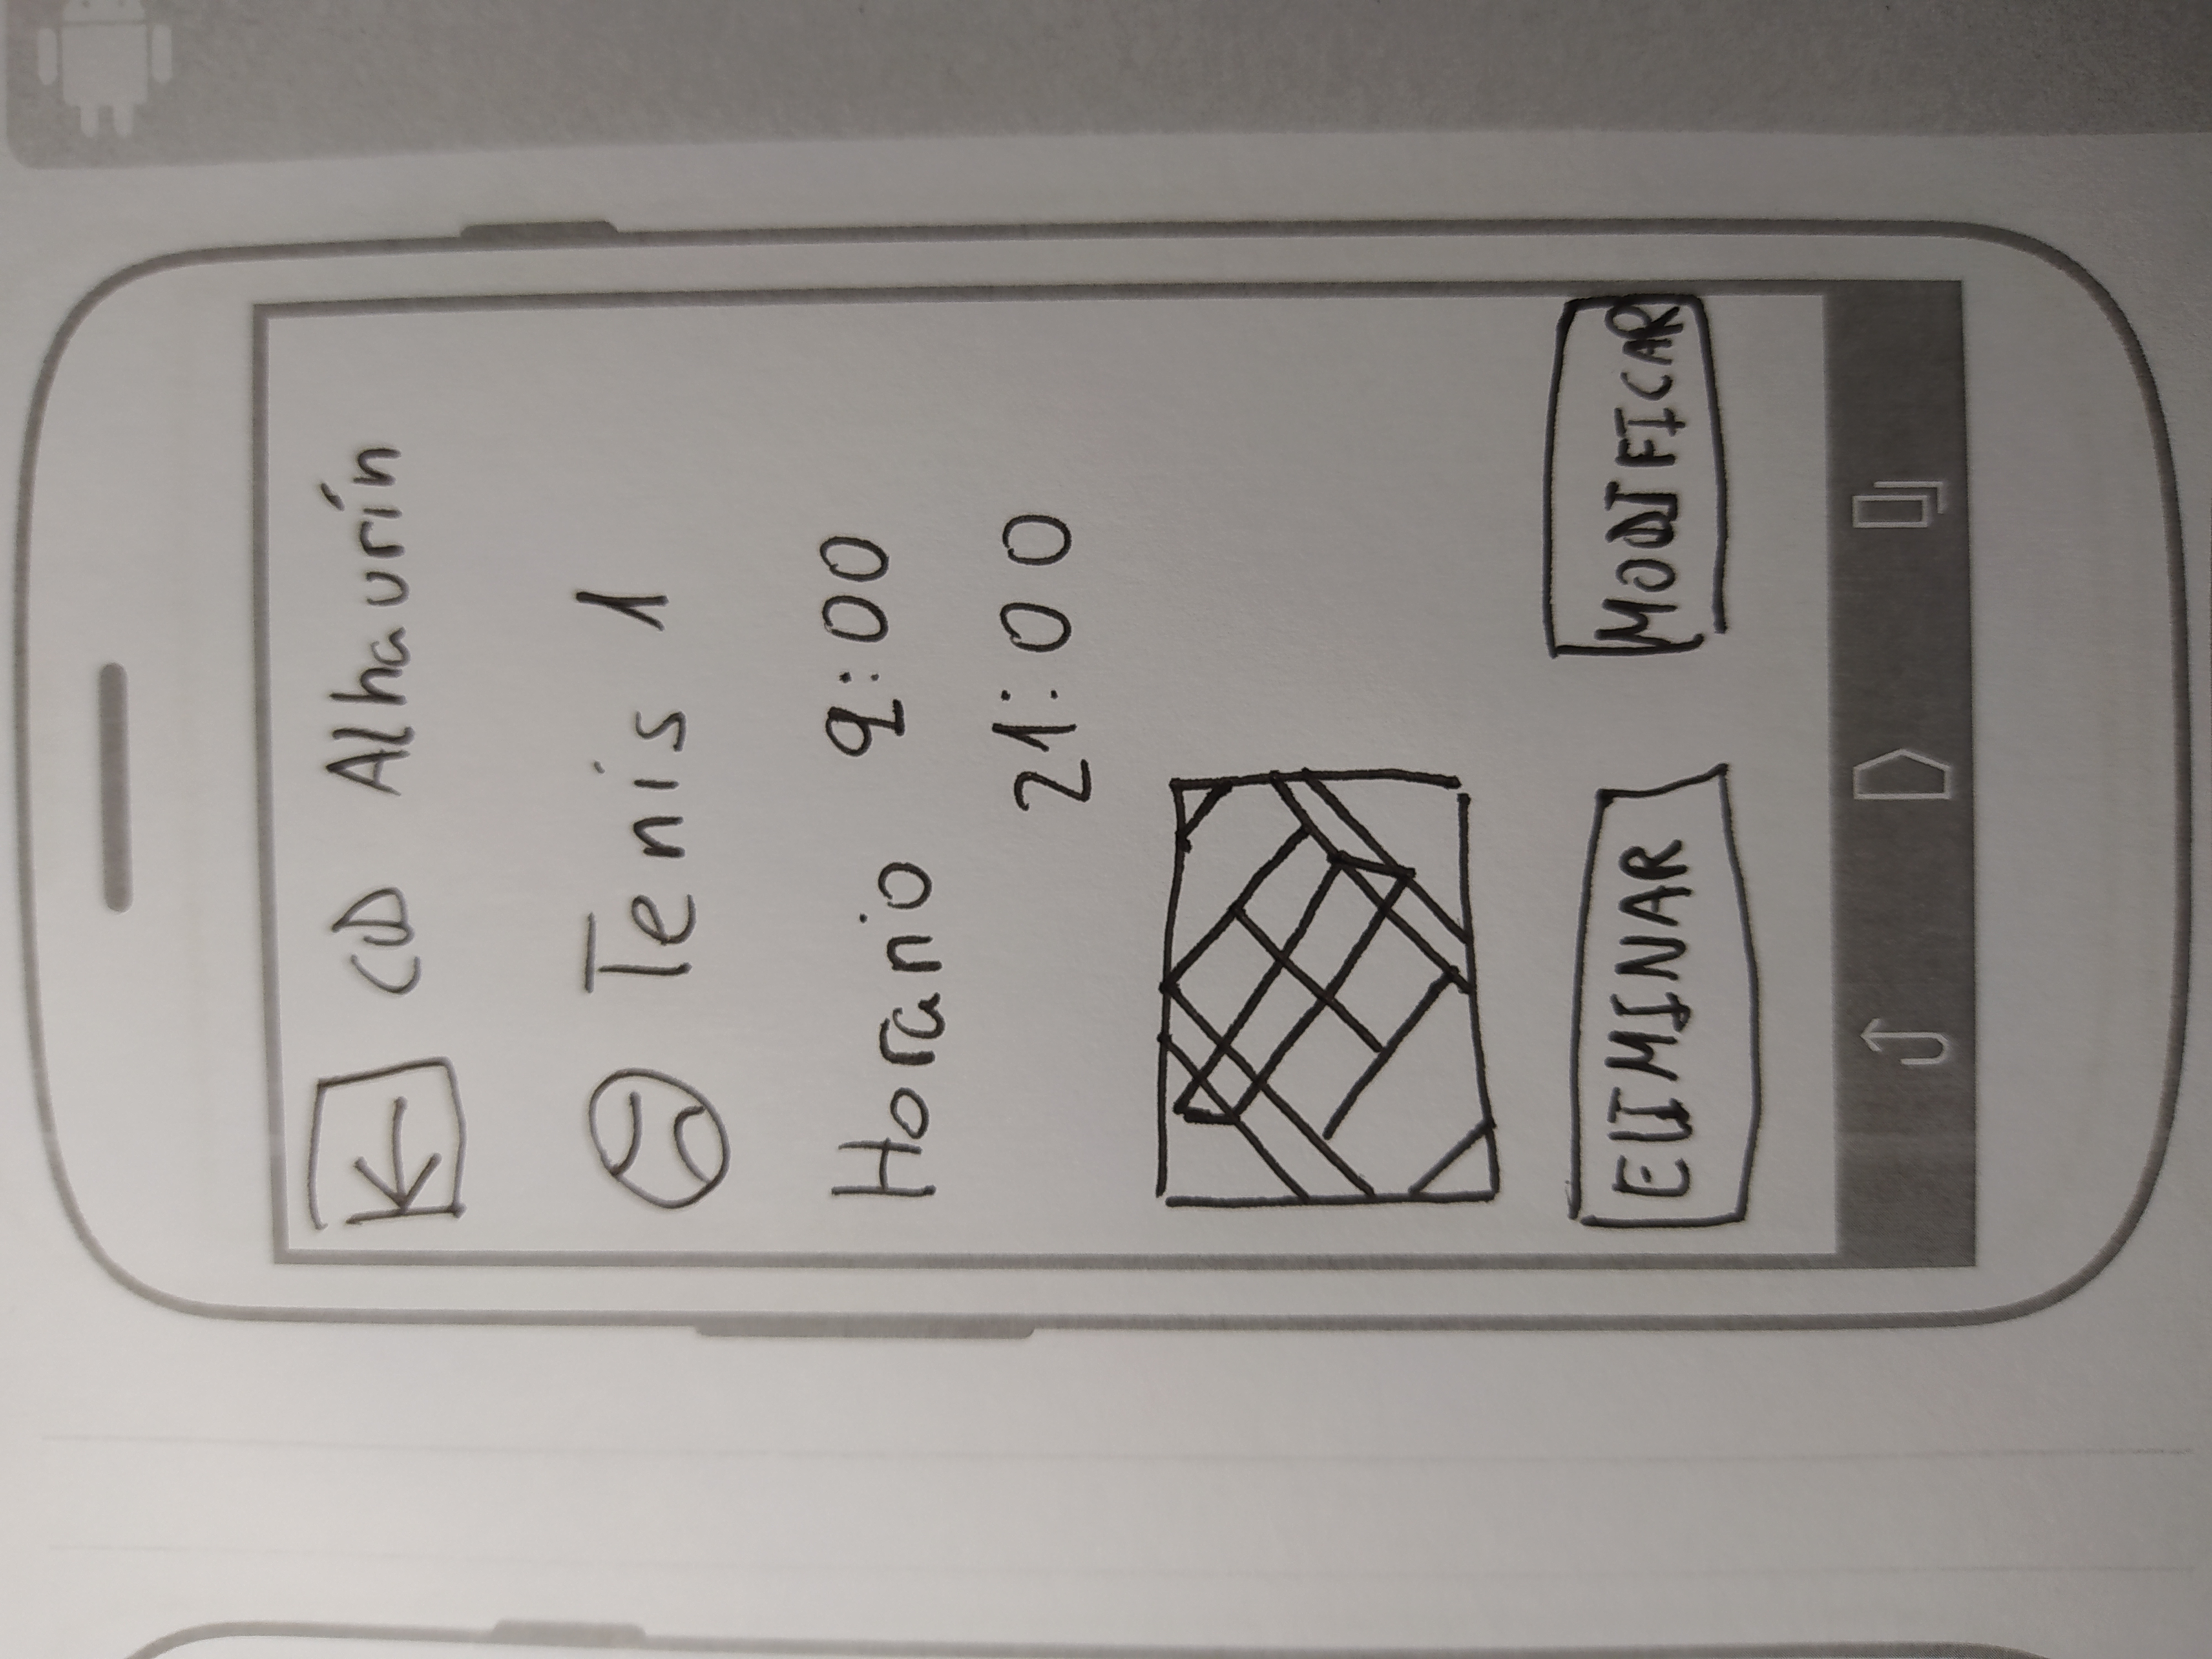 CD Alhaurín
Tenis 1
Horario 9:00
21:00
ELIMINAR MODIFICAR